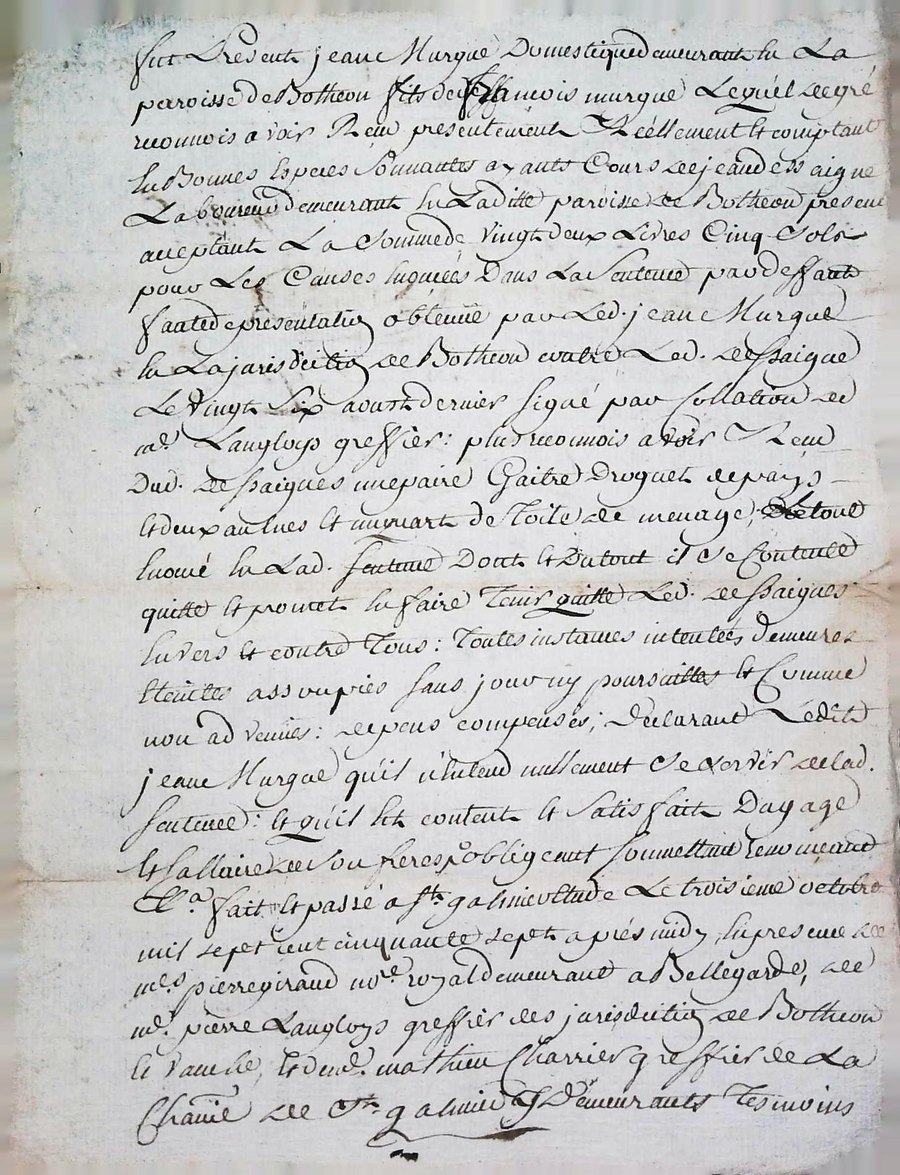 fut Présent jean Murgue Domestique demeurant en La
paroisse de Botheon fils de françois murgue Lequel de gré
reconnois avoir Reçu presentement Réellement et comptant
en Bonnes Especes Sonnantes ayants Cours de jean dessaigne
Laboureur demeurant en Laditte paroisse de Botheon present
acceptant La Somme de vingt deux Livres Cinq Sols
pour Les Causes enoncées Dans La Sentence par deffaut
faute de presentation obtenüe par Led. jean Murgue
en La jurisdiction de Botheon contre Led. dessaigne
Le vingt six aoust dernier signé par Collation de
me. Langloys greffier: plus reconnois avoir Reçu
Dud. dessaignes une paire Droguet de pays
et deux aulnes et un quart de Toile de menage, Le tout
enoncé en Lad. sentence Dont et Du tout il Se Contente
quitte et promet en faire Tenir quitte Led. dessaignes
envers et contre Tous: Toutes instances intentées demeures
eteintes assoupies sans pouvoir poursuittes et Comme
non advenües: depens compensés; declarant Ledit
jean Murgue qu'il n'entend nullement Se Servir de lad.
sentence: et qu'il est content et Satisfait Du gage
et Sallaire de Son frere obligeant soumettant renonceant
fait et passé a st. galmier etude Le troisieme octobre
mil sept cent cinquante sept après midy en presence de
me. pierre giraud nore. royal demeurant a Bellegarde, de
me. pierre Langloys greffier des jurisdiction de Botheon
et et de me. mathieu Charrier greffier de La
de St. galmier Demeurants Tesmoins